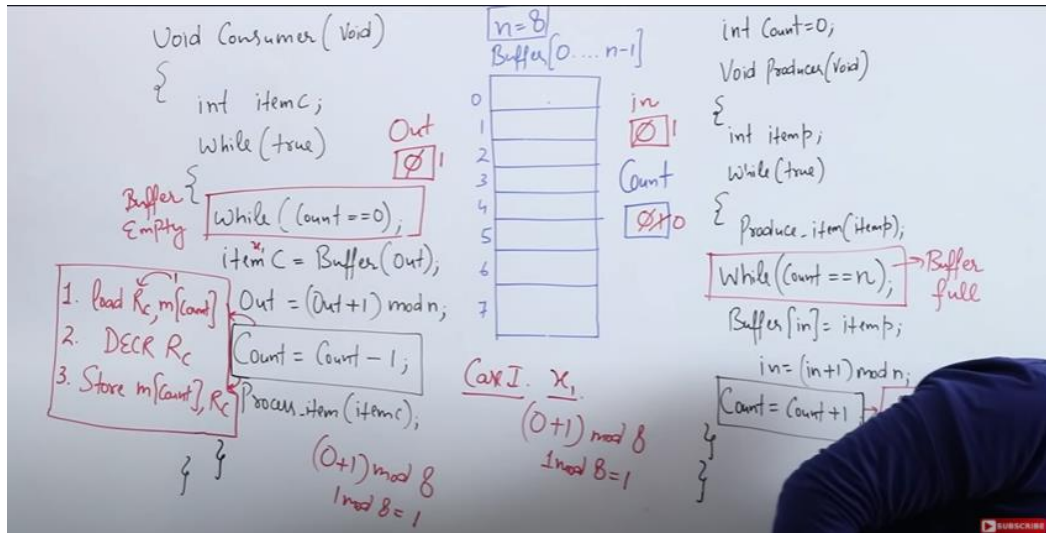 Void Consumer(Void)
{
int itemC;
While(true)
{
Buffer
Empty
While(Count==0);
x1
itemC = Buffer(Out);
Out = (Out+1) mod n;
Count = Count - 1;
Process_item(itemc);
}
}
1. load Rc, m[Count]
2. DECR Rc
3. Store m[Count], Rc
(0+1) mod 8
1 mod 8 = 1
Out
0 1
n=8
Buffer[0....n-1]
0
1
2
3
4
5
6
7
in
0 1
Count
0 1 0
Case I. x1
(0+1) mod 8
1 mod 8 = 1
int Count=0;
Void Producer(Void)
{
int itemp;
While(true)
{
Produce_item(itemp);
While(Count==n); → Buffer
full
Buffer[in] = itemp;
in=(in+1) mod n;
Count = Count+1 →
}
}
SUBSCRIBE